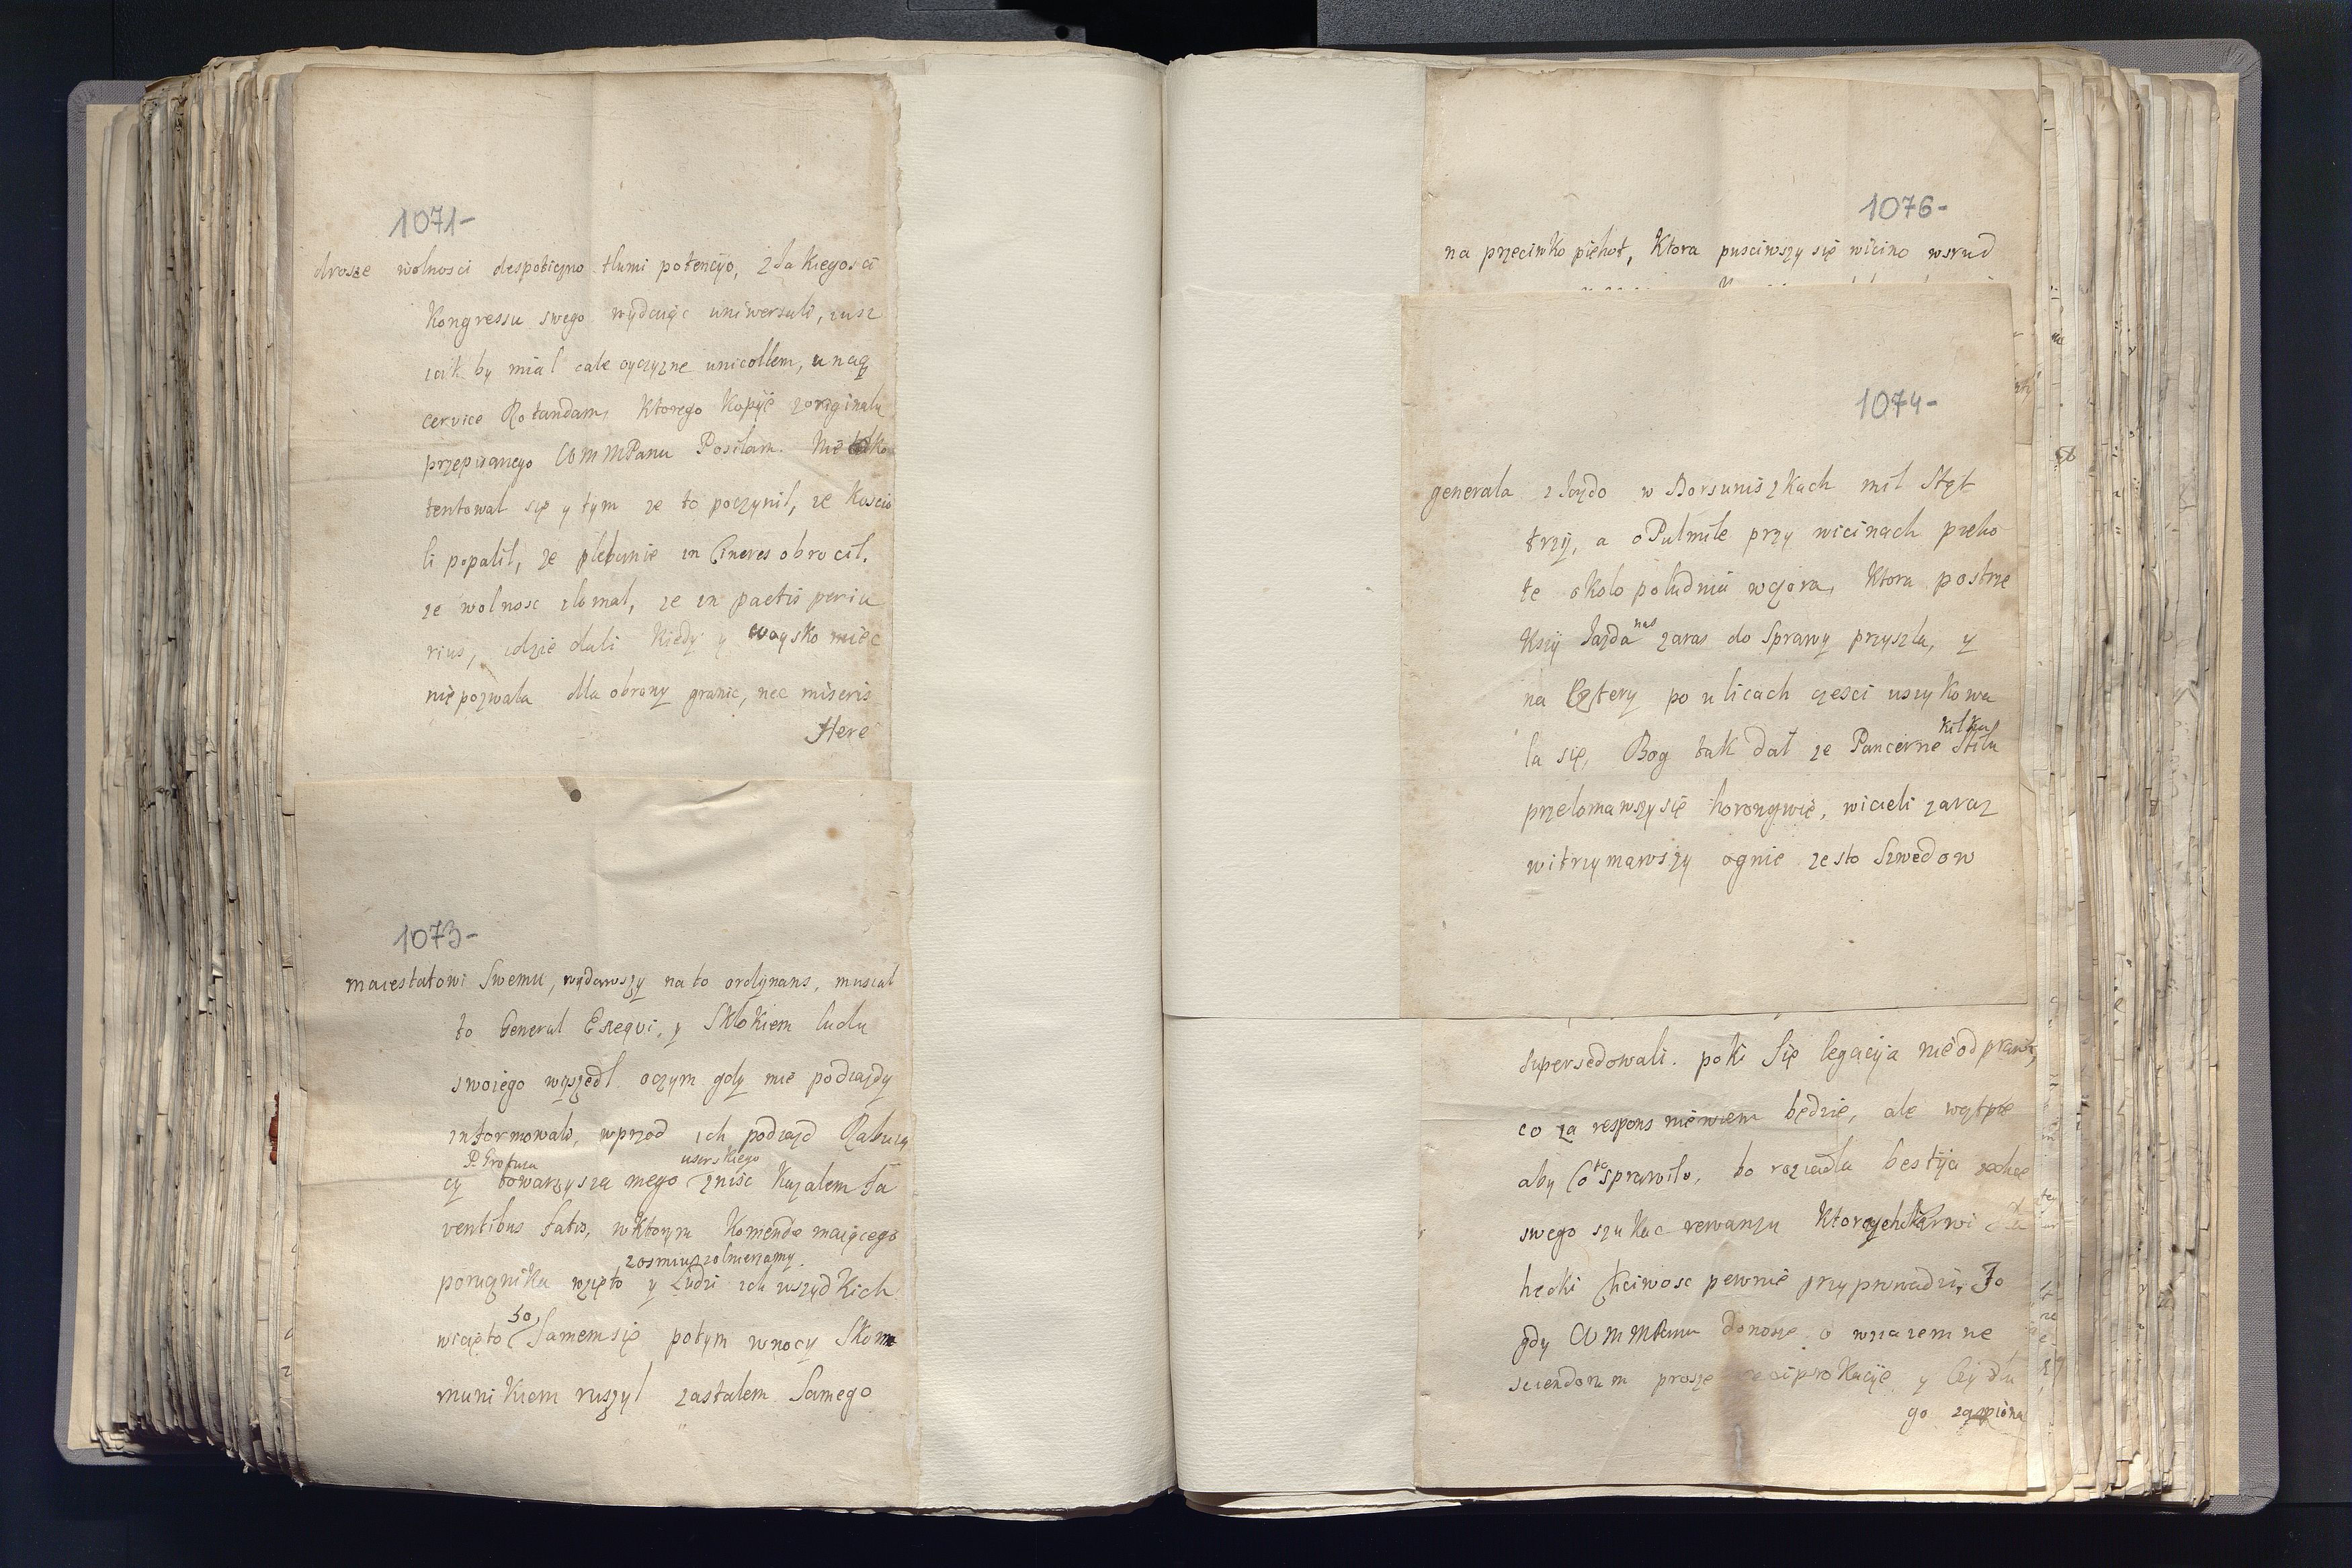 1071-
drosze wolnosci despoticzno tlumi potencyo, z Ja Kiegos ci
Kongressu swego wydaiąc uniwersale, iusz
iak by mial cale oyczyzne unicollem, unaq
cervice Rotandam, Ktorego Kopye zoriginalu
przepisanego WMMPanu Posilam. Nie
tentowal się y tym ze to poczynil, ze Koscio
li popalil, ze plebanie in Cineres obrocil.
ze wolnosc zlomal, ze in pactis periu
rius, idzie dali Kiedy y woysko miec
nie pozwala dla obrony granic, nec miseris
Here
1073-
maiestatowi Swemu, wydawszy na to ordynans, musial
to General Exequi, y SKloKiem ludu
swoiego wyszedl oczym gdy mie podiazdy
informowali, wprzod ich podiazd
P. Grotuza userskiego
cy towarzysza mego znisc Kazalem fa
ventibus fatis, wKtorym Komende maiącego
zosmiu zolnierzamy
porucznika wzięto y Ludzi ich wszydKich
50
wicięto Samemsię potym wnocy SKom
muniKiem ruszyl zastalem Samego
1076-
na przeciwko piehot, Ktora pusciwszy się wicino wsrud
1074-
generala z Jazdo w DorsuniszKach mil Stąt
trzy, a oPulmile przy wicinach pieho
te okolo poludnia wczora, Ktora postrze
nas
Kszy Jazda zaras do Sprawy przyszla, y
na Cztery po ulicach czesci uszyKowa
kilKu
la się, Bog tak dal ze Pancerne Stilu
przelomawszy się horongwie, wicieli zaraz
witrzymawszy ognie ze sto Szwedow
Supersedowali. poki Się legacyja nie odprawi,
co za respons niewiem będzie, ale wątpie
to
aby Co sprawilo, bo roziadla bestyja zechce
swego szuKac rewanzu
hecki Chciwosc pewnie przyprowadzi, Jo
gdy WMMPanu donosze o wzaiemne
sciendorum prosze reciproKacye y
go